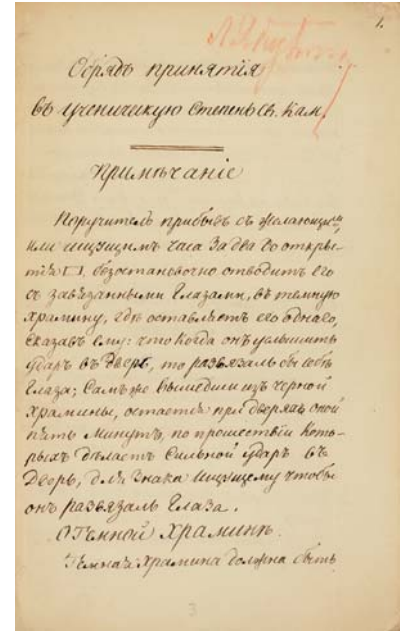 1.
Обрядъ принятія
въ ученическую степень Св. Кам.
Примѣчаніе
Поручитель прибывъ съ желающимъ,
или ищущимъ часа за два до откры-
тія □, безостановочно отводитъ его
съ завязанными глазами, въ темную
храмину, гдѣ оставляетъ его однаго,
сказавъ ему: что когда онъ услышитъ
ударъ въ дверь, то развязалъ бы себѣ
глаза; Самъ же вышедши изъ черной
храмины, остается при дверяхъ оной
пять минутъ, по прошествіи кото-
рыхъ дѣлаетъ сильной ударъ въ
дверь, для знака ищущему чтобы
онъ развязалъ глаза.
О Темной храминѣ.
Темная храмина должна быть
3